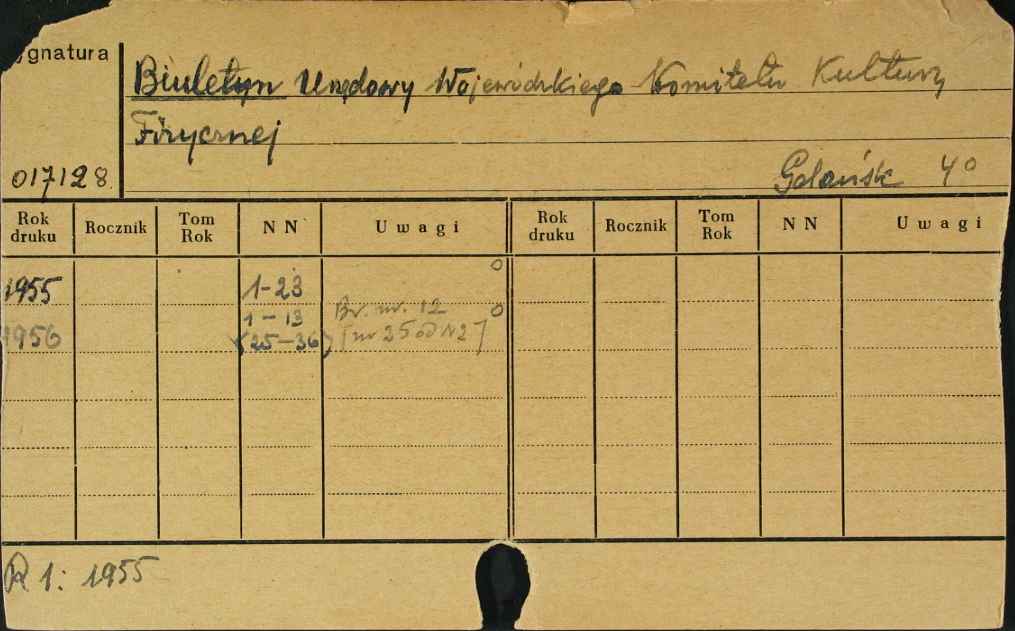 ygnatura
Biuletyn Urzędowy Wojewódzkiego Komitetu Kultury
Fizycznej
017128. Gdańsk 4°
Rok druku Rocznik Tom Rok NN Uwagi Rok druku Rocznik Tom Rok NN Uwagi
1955 1-23 0
1-13 Br. nr. 12 0
1956 (25-36) [nr 25 od N2]
R 1: 1955